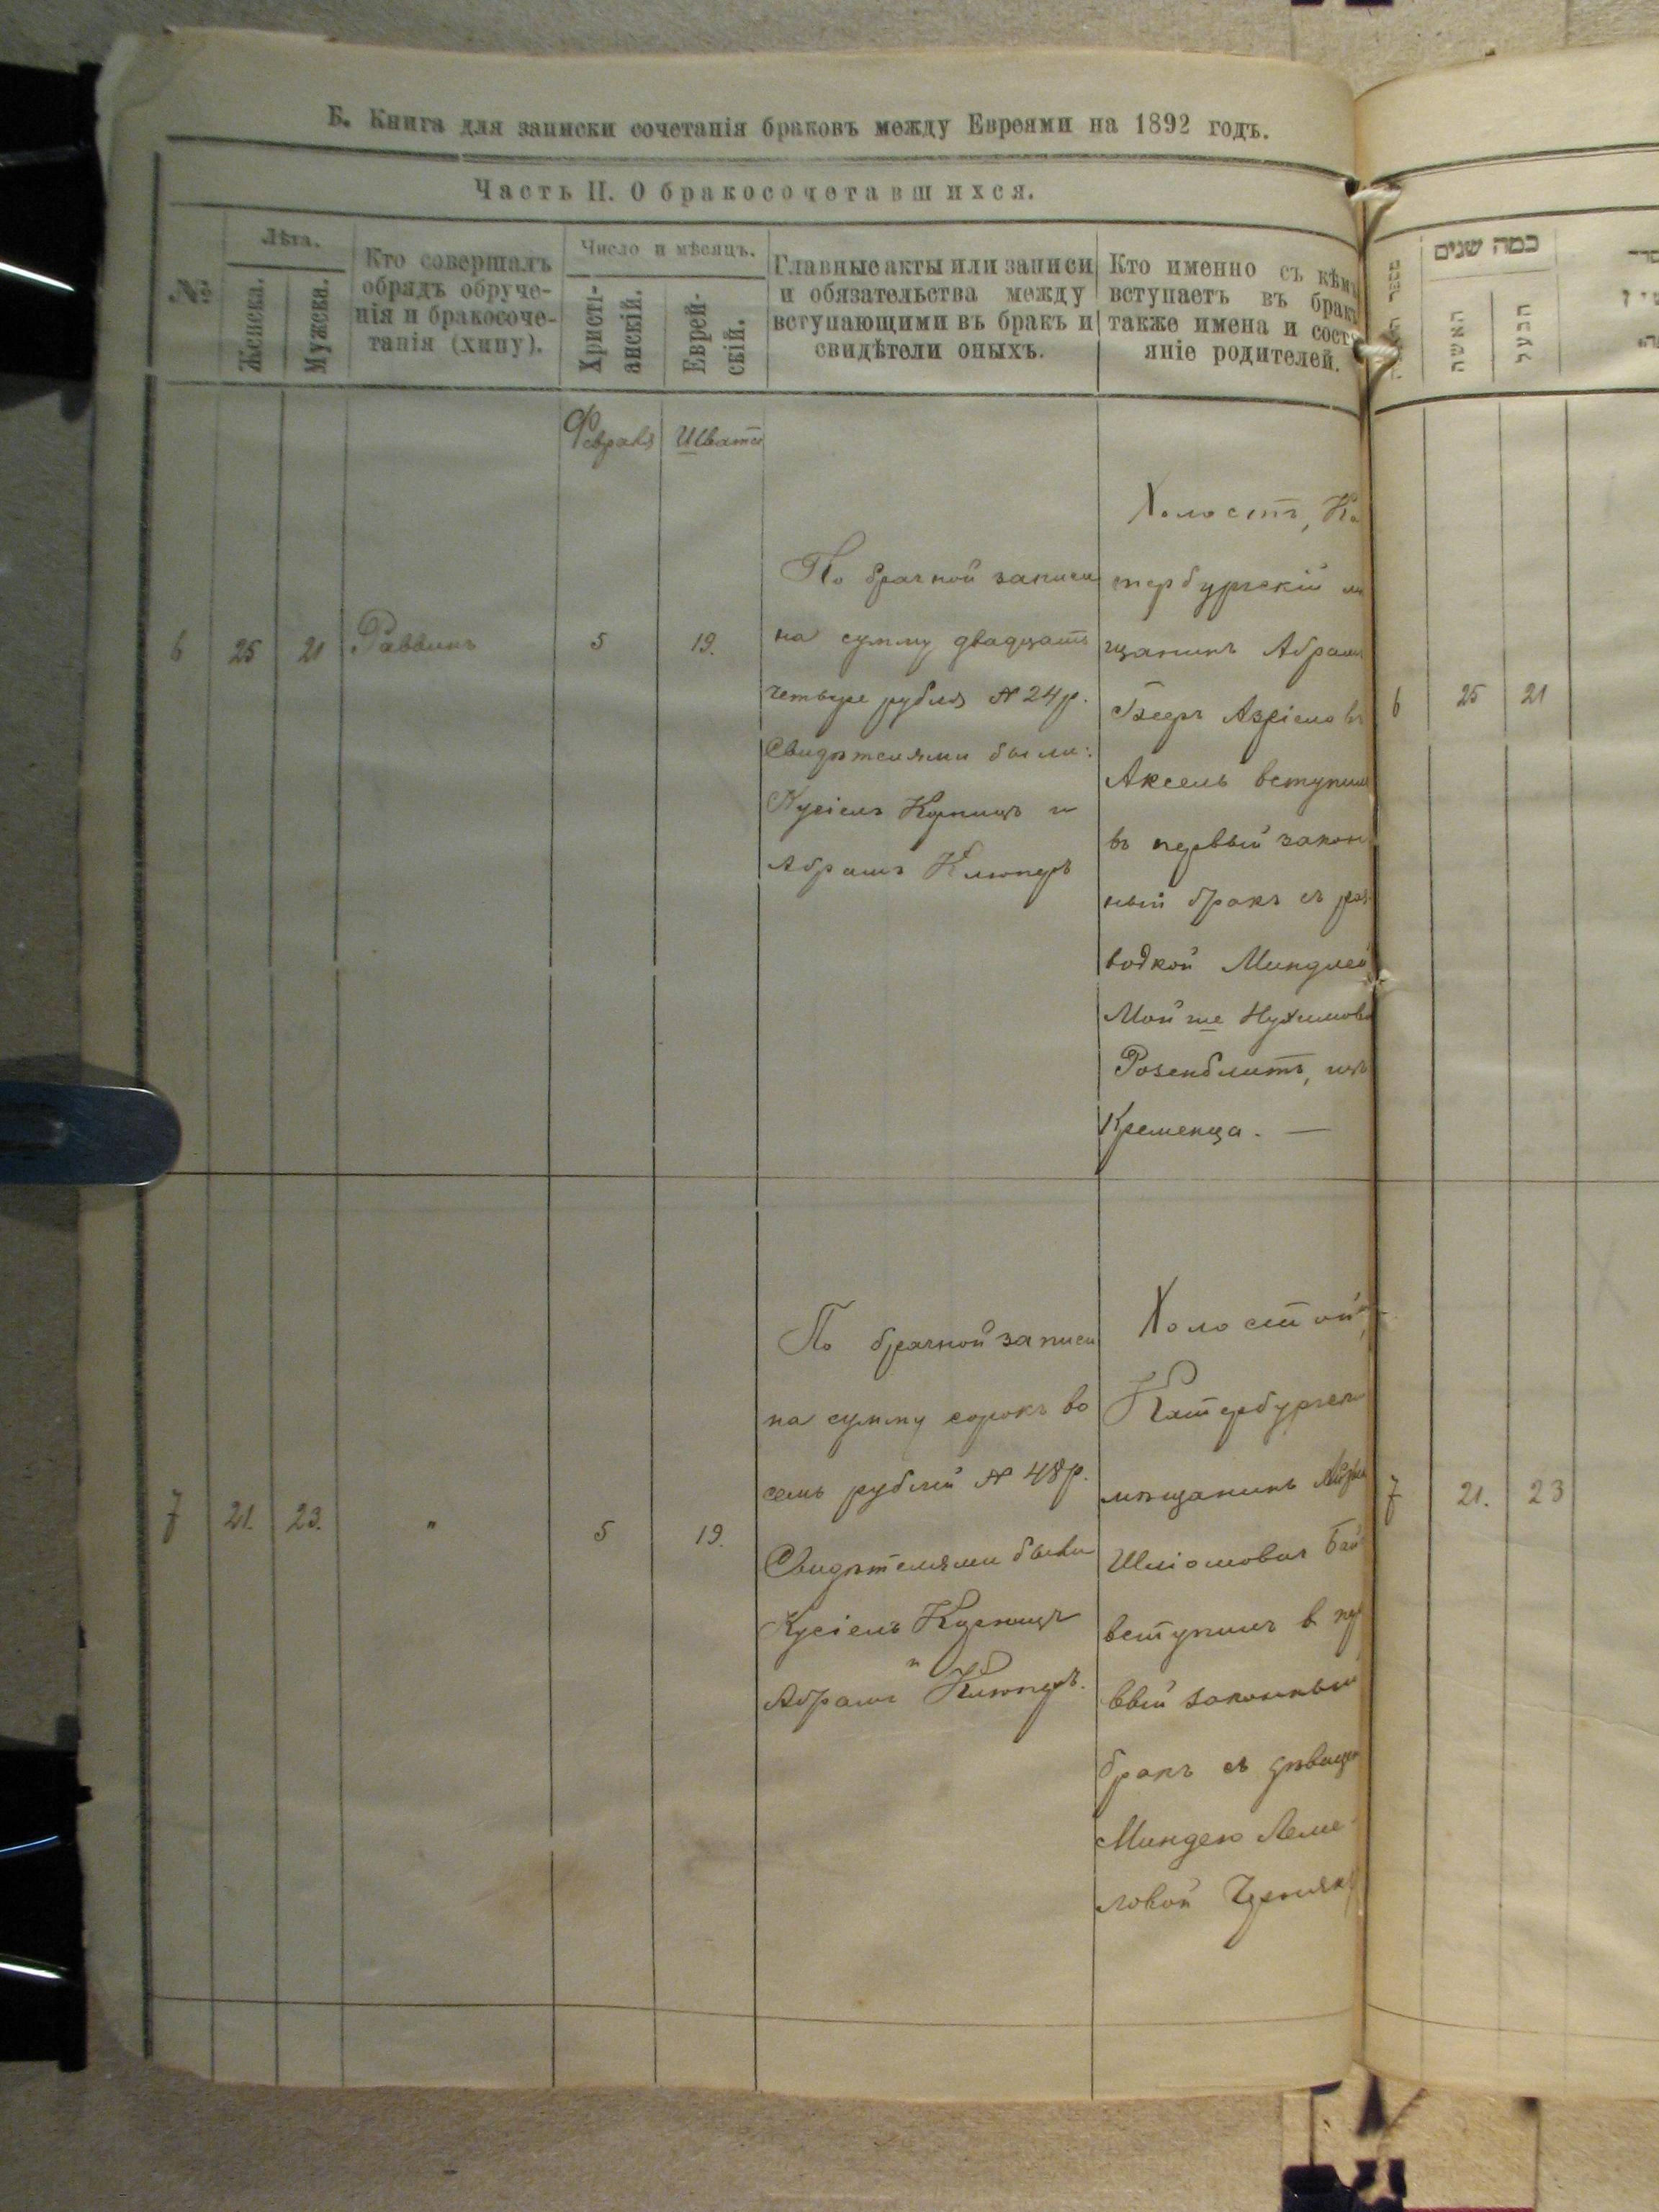 Б. Книга для записки сочетанія браковъ между Евреями на 1892 годъ.
Часть II. О бракосочетавшихся.
№
Лѣта.
Женска.
Мужска.
Кто совершалъ
обрядъ обруче-
нія и бракосоче-
танія (хипу).
Число и мѣсяцъ.
Христі-
анскій.
Еврей-
скій.
Главные акты или записи
и обязательства между
вступающими въ бракъ и
свидѣтели оныхъ.
Кто именно съ кѣмъ
вступаетъ въ бракъ
также имена и состо
яніе родителей.
Февраля
Швата
6
25
21
Раввинъ
5
19.
По брачной записи
на сумму двадцать
четыре рубля № 24 р.
Свидѣтелями были:
Кусіель Курницъ и
Абрамъ Клюперъ
Холостъ, Ка
тербургскій м
щанинъ Абрамъ
Бееръ Азріеловъ
Аксель вступилъ
въ первый закон
ный бракъ съ раз
водкой Миндлей
Мойше Нухимово
Розенблитъ, изъ
Кременца. —
7
21.
23.
"
5
19.
По брачной записи
на сумму сорокъ во
семь рублей № 48 р.
Свидѣтелями были
Кусіель Курницъ
и
Абрамъ Клюперъ.
Холостой,
Катербургск
мѣщанинъ
Шліомовъ
вступилъ в пер
вый законный
бракъ съ дѣвицей
Миндею Леме
ловой Чернякъ
כמה שנים
האשה
הבעל
6
25
21
7
21.
23